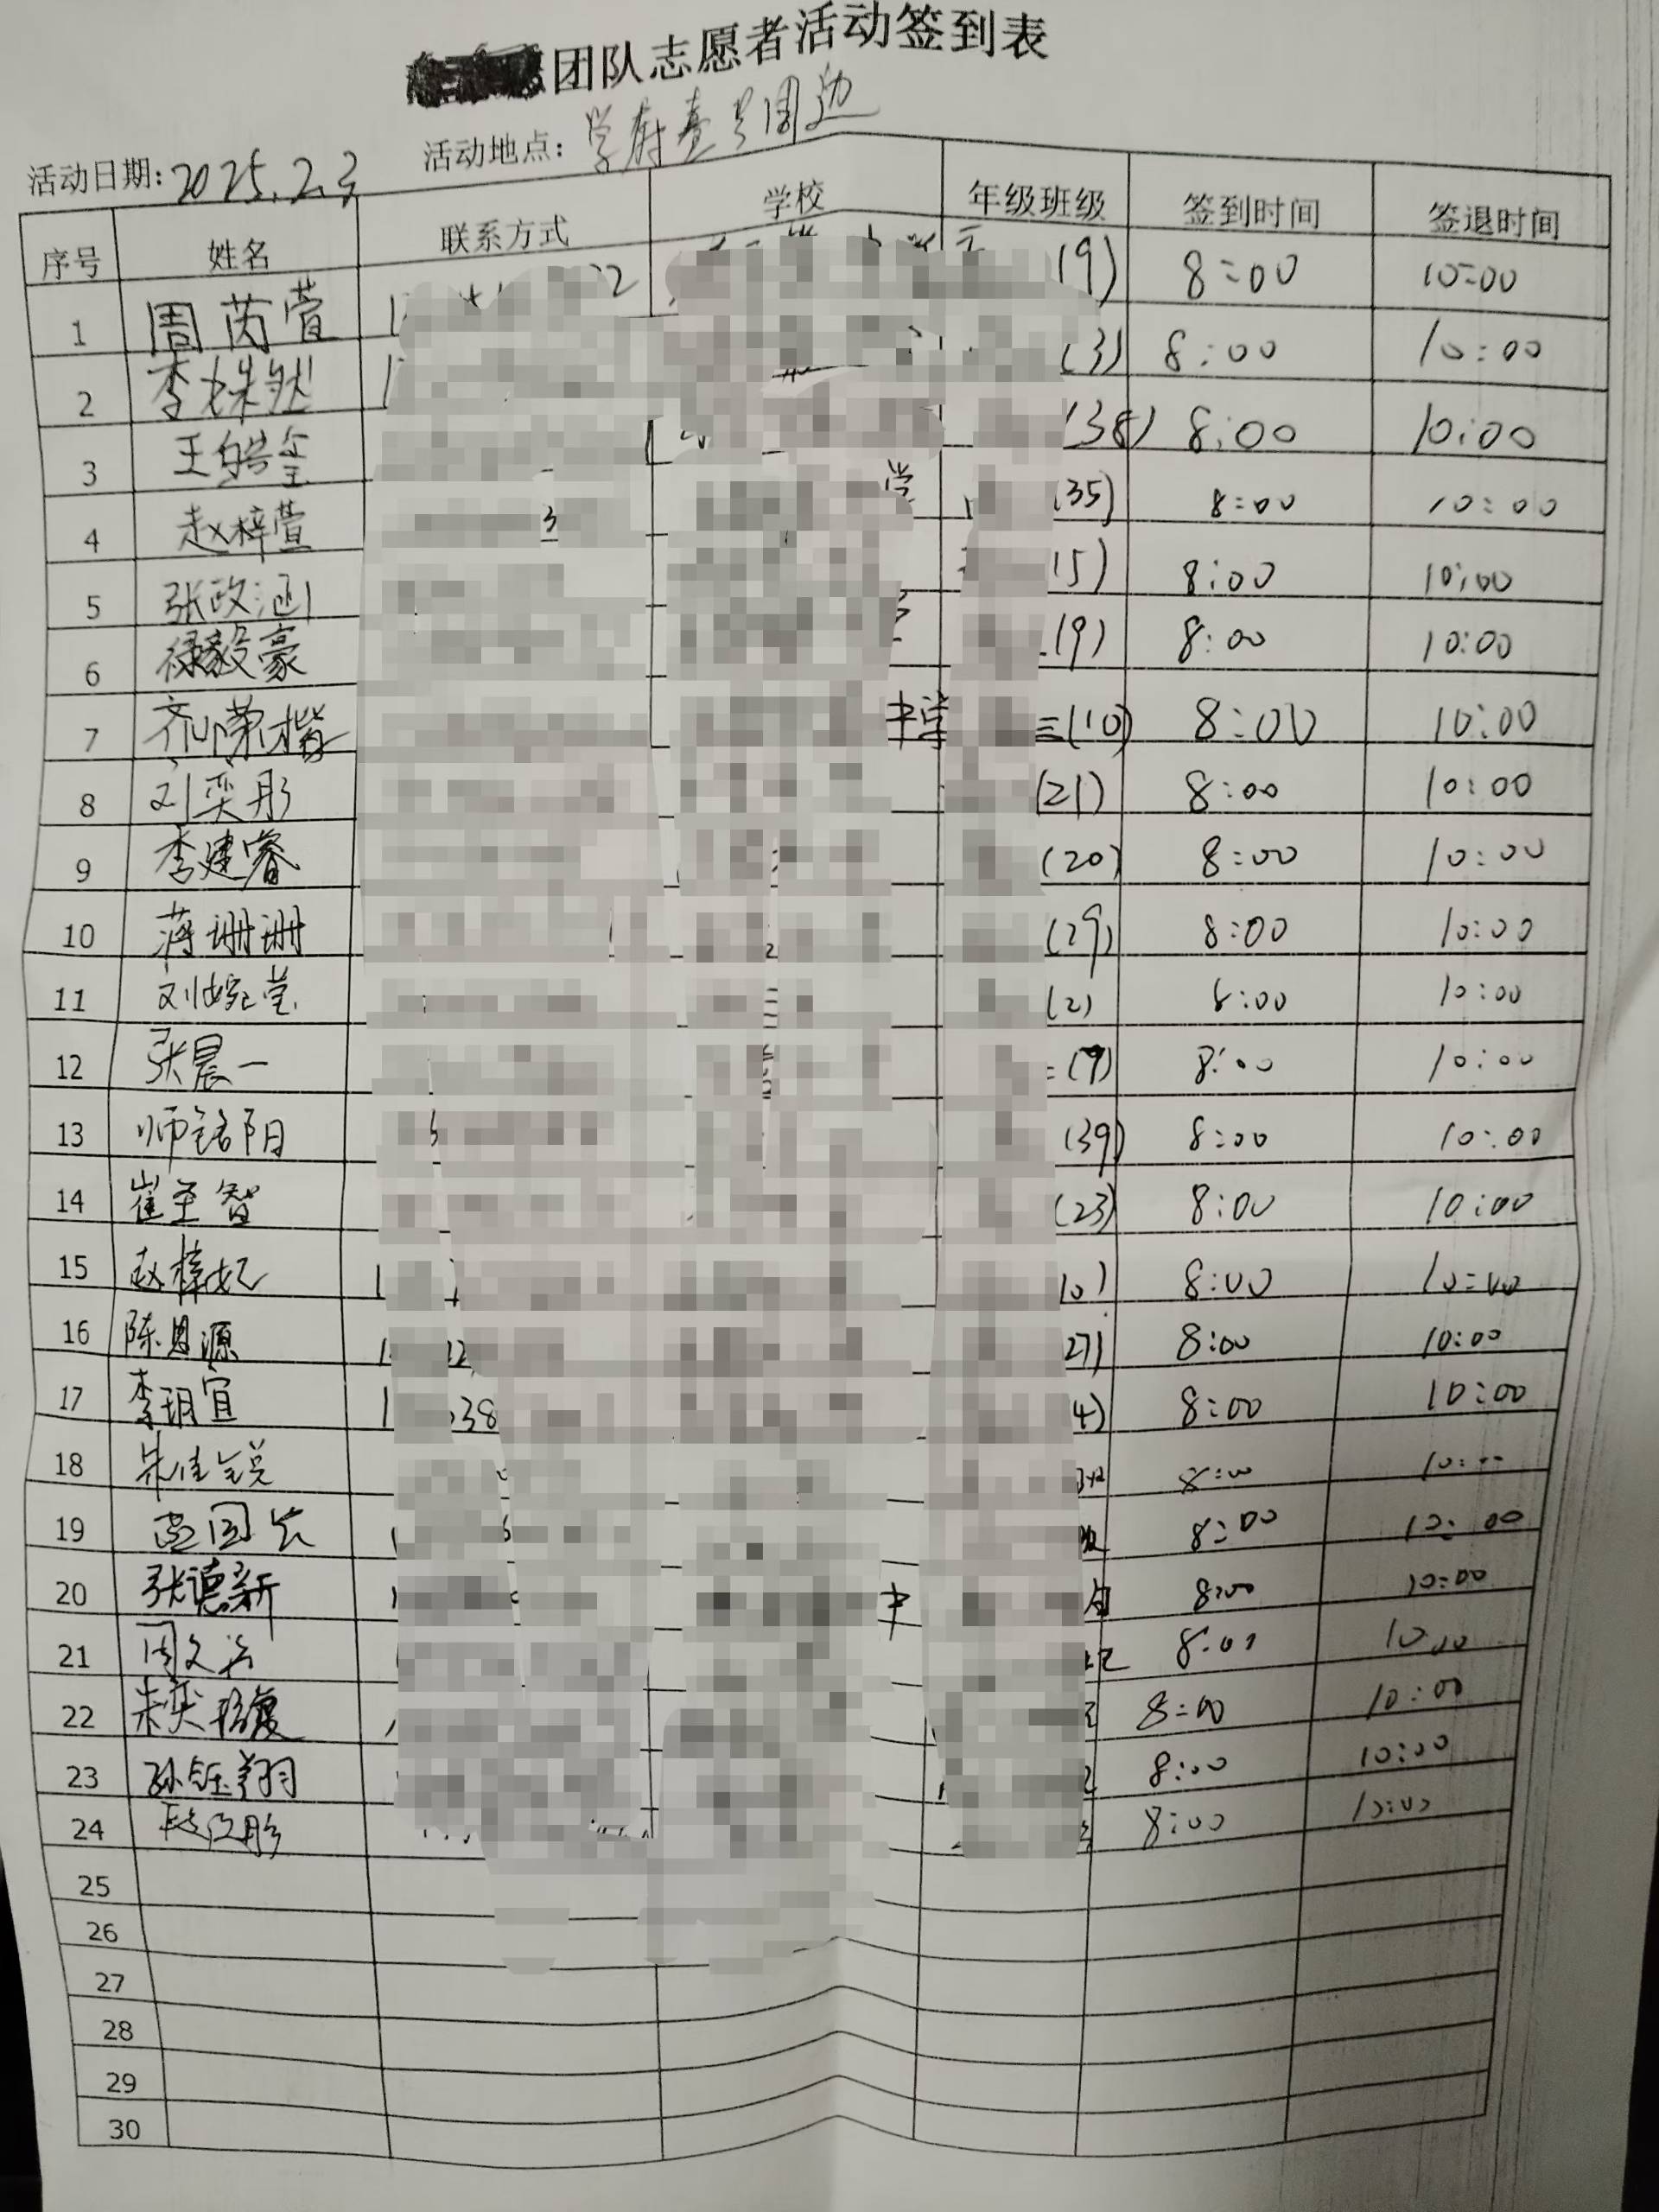 团队志愿者活动签到表
活动日期:2025.2.3 活动地点:学府壹号周边
序号 姓名 联系方式 学校 年级班级 签到时间 签退时间
1 周芮萱 (9) 8:00 10:00
2 李姝然 (3) 8:00 10:00
3 王皓玺 (38) 8:00 10:00
4 赵梓萱 3 学 (35) 8:00 10:00
5 张政涵 15) 8:00 10:00
6 禄毅豪 (9) 8:00 10:00
7 齐荣楷 中学 三(10) 8:00 10:00
8 刘奕彤 (21) 8:00 10:00
9 李建睿 (20) 8:00 10:00
10 蒋珊珊 (29) 8:00 10:00
11 刘婉莹 (2) 8:00 10:00
12 张晨一 (9) 8:00 10:00
13 师铭阳 (39) 8:00 10:00
14 崔至智 (23) 8:00 10:00
15 赵梓妃 10) 8:00 10:00
16 陈思源 27) 8:00 10:00
17 李玥宜 38 4) 8:00 10:00
18 朱佳锐 8:00 10:00
19 孟国 8:00 10:00
20 张德新 中 8:00 10:00
21 周文 8:00 10:00
22 朱奕 8:00 10:00
23 孙钰翔 8:00 10:00
24 段 彤 8:00 10:00
25
26
27
28
29
30